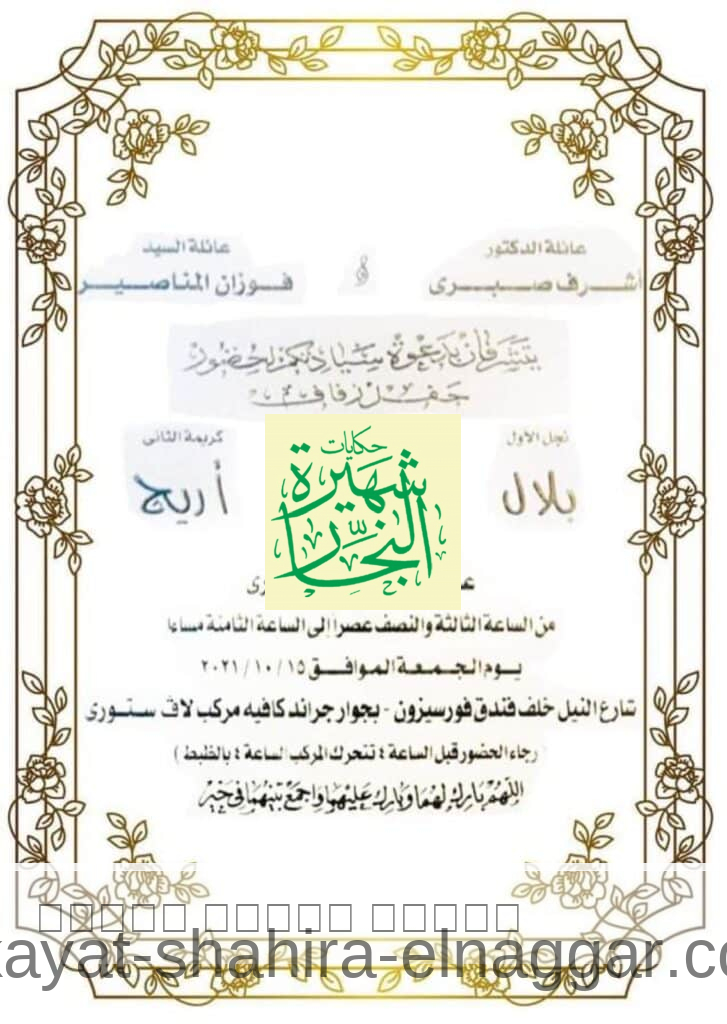 عائلة الدكتور
أشرف صبرى
و
عائلة السيد
فوزان المناصير
يتشرفان بدعوة سيادتكم لحضور
حفل زفاف
نجل الأول
بلال
كريمة الثانى
أريج
حكايات
شهيرة
النجار
من الساعة الثالثة والنصف عصراً إلى الساعة الثامنة مساءا
يوم الجمعة الموافق ٢٠٢١/١٠/١٥
شارع النيل خلف فندق فورسيزون - بجوار جراند كافيه مركب لاف ستورى
(رجاء الحضور قبل الساعة ٤ تتحرك المركب الساعة ٤ بالظبط)
اللهم بارك لهما وبارك عليهما واجمع بينهما فى خير
kayat-shahira-elnaggar.co